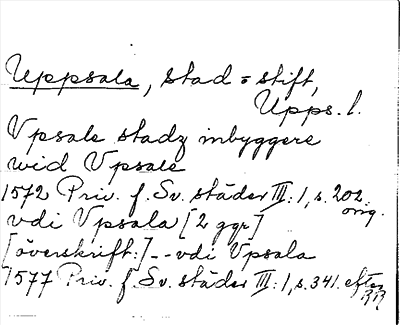 Uppsala, stad = stift,
Upps. l.
Vpsale stadz inbyggere
wid Vpsale
1572 Priv. f. Sv. städer III: 1, s. 202.
orig.
vdi Vpsala [2 ggr]
[överskrift:] - - vdi Vpsala
1577 Priv. f. Sv. städer III: 1, s. 341. efter